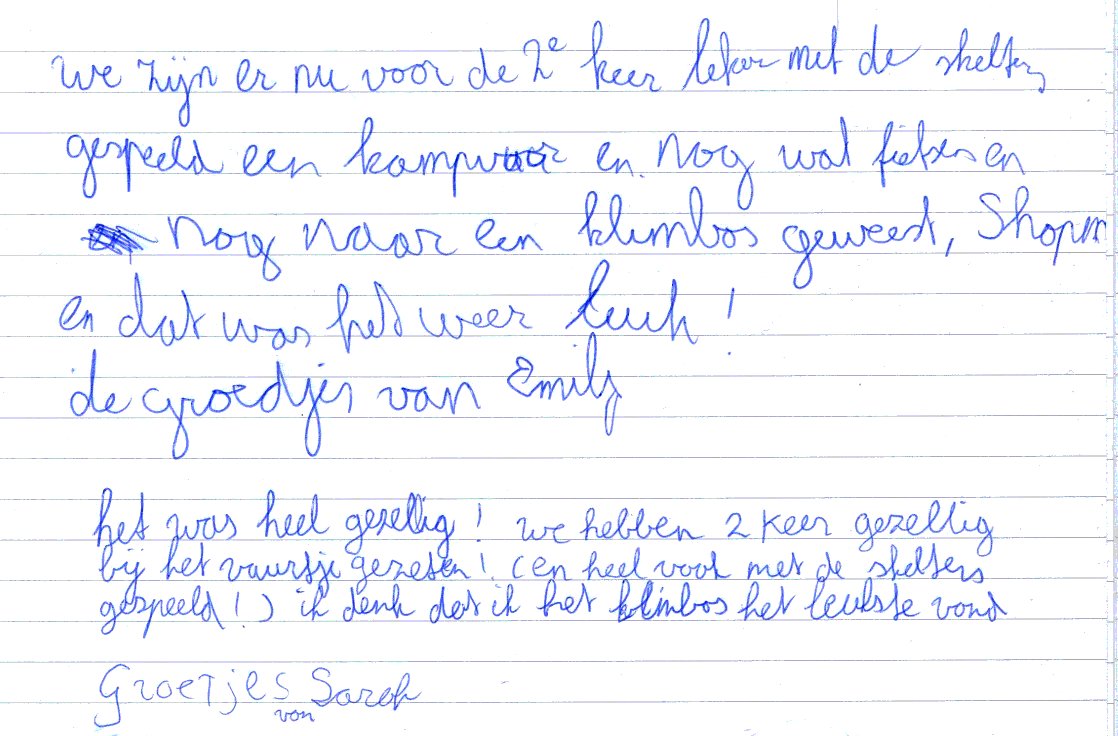 We zijn er nu voor de 2e keer leker met de skelters
gespeeld een kampvuur en nog wat fietsen en
nog naar een klimbos geweest, Shopm
en dat was het weer leuk!
de groedjes van Emily
het was heel gezellig! we hebben 2 keer gezellig
bij het vuurtje gezeten! (en heel vook met de skelters
gespeeld!) ik denk dat ik het klimbos het leukste vond
Groetjes van Sarah